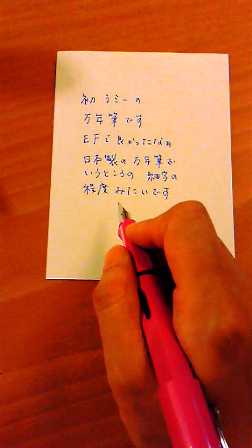 初ラミーの
万年筆です
EFで良かったなぁ
日本製の万年筆で
いうところの 細字の
程度みたいです